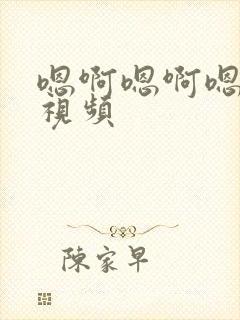 嗯啊嗯啊嗯
視頻
陳家早